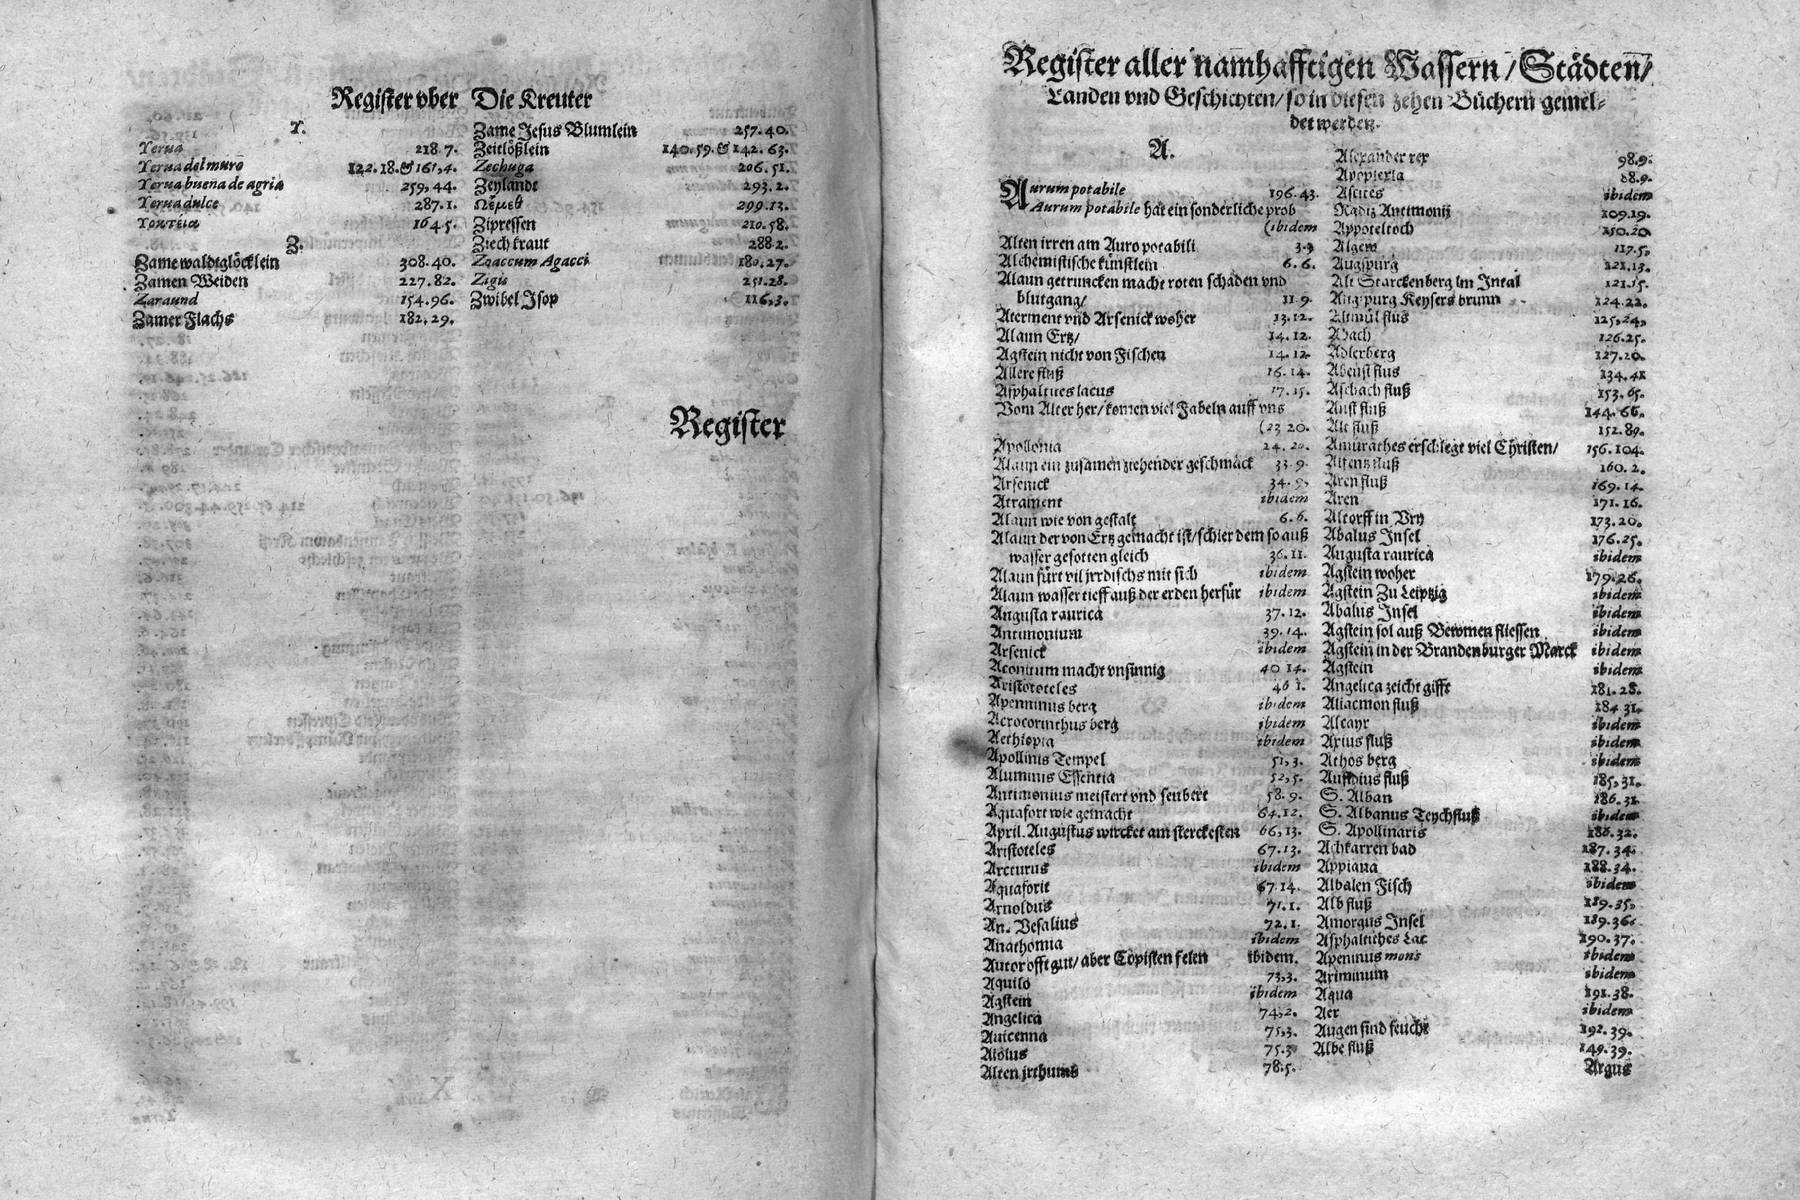 Register vber Die Kreuter
Y.
Yerua 218.7.
Yerua del muro 122.18.& 161,4.
Yerua buena de agria 259,44.
Yerua dulce 287.1.
164.5.
Z.
Zame waldtglöcklein 308.40.
Zamen Weiden 227.82.
Zaraund 154.96.
Zamer Flachs 182.29.
Zame Jesus Blumlein 257.40.
Zeitlößlein 140.59.& 142.63.
Zechuga 206.51.
Zeylandt 293.2.
299.13.
Zipressen 210.58.
Ziech kraut 288.2.
Zoaccum Agacci 180.27.
Zigis 251.28.
Zwibel Isop 116,3.
Register
Register aller namhafftigen Wassern / Städten/
Landen vnd Geschichten/ so in diesen zehen Büchern gemel-
det werden.
A.
Aurum potabile 196.43.
Aurum potabile hat ein sonderliche prob
(ibidem
Alten irren am Auro potabili 3.9
Alchemistische künstlein 6.6.
Alaun getruncken macht roten schaden vnd
blutgang/ 11.9.
Aterment vnd Arsenick woher 13.12.
Alaun Ertz/ 14.12.
Agstein nicht von Fischen 14.12.
Allere fluß 16.14.
Asphaltites lacus 17.15.
Vom Alter her/ komen viel Fabeln auff vns
(23 20.
Apollonia 24.20.
Alaun ein zusamen ziehender geschmack 33.9.
Arsenick 34.9,
Atrament ibidem
Alaun wie von gestalt 6.6.
Alaun der von Ertz gemacht ist/ schier dem so auß
wasser gesotten gleich 36.11.
Alaun fürt vil jrrdischs mit sich ibidem
Alaun wasser tieff auß der erden herfür ibidem
Augusta raurica 37.12.
Antimonium 39.14.
Arsenick ibidem
Aconitum macht vnsinnig 40 14.
Aristoteles 46 1.
Apenninus berg ibidem
Acrocorinthus berg ibidem
Aethiopia ibidem
Apollinis Tempel 51,3.
Aluminis Essentia 52,5.
Antimonius meistert vnd seubert 58.9.
Aquafort wie gemacht 64.12.
April. Augustus wircket am sterckesten 66,13.
Aristoteles 67.13.
Arcturus ibidem
Aquafortt 67.14.
Arnoldus 71.1.
An. Vesalius 72.1.
Anathomia ibidem
Autor offt gut/ aber Copisten felen ibidem.
Aquilo 73,3.
Agstein ibidem
Angelica 74,2.
Auicenna 75,3.
75.3
Alten jrthums 78.5.
Alexander rex 98.9.
Apoplexia 88.9.
Ascites ibidem
Radix Antimonij 109.19.
Appoteltoch 150.20
Algew 117.5,
Augspurg 121.13.
Alt Starckenberg im Intal 121.15.
Augspurg Keysers brunn 124.22.
Altmül flus 125,24,
Abach 126.25.
Adlerberg 127.20.
Abenst flus 134.41
Aschach fluß 153.65.
Anst fluß 144.66.
Alt fluß 152.89.
Amurathes erschlegt viel Christen/ 156.104.
Alsentz fluß 160.2.
Aren fluß 169.14.
Aren 171.16.
Altorff in Vry 173.20.
Abalus Insel 176.25.
Augusta raurica ibidem
Agstein woher 179.26.
Agstein Zu Leiptzig ibidem
Abalus Insel ibidem
Agstein sol auß Bewmen fliessen ibidem
Agstein in der Brandenburger Marck ibidem
Agstein ibidem
Angelica zeicht gifft 181.28.
Aliacmon fluß 184 31.
Alcayr ibidem
Axius fluß ibidem
Athos berg ibidem
Auffdius fluß 185,31.
S. Alban 186.31.
S. Albanus Teychfluß ibidem
S. Apollinaris 186.32.
Achkarren bad 187.34.
Appiana 188.34.
Albalen Fisch ibidem
Alb fluß 189.35,
Amorgus Insel 189.36.
Asphaltiches Lac 190.37.
Apeninus mons ibidem
Ariminum ibidem
Aqua 191.38.
Aer ibidem
Augen sind feucht 192.39.
Albe fluß 149.39.
Argus